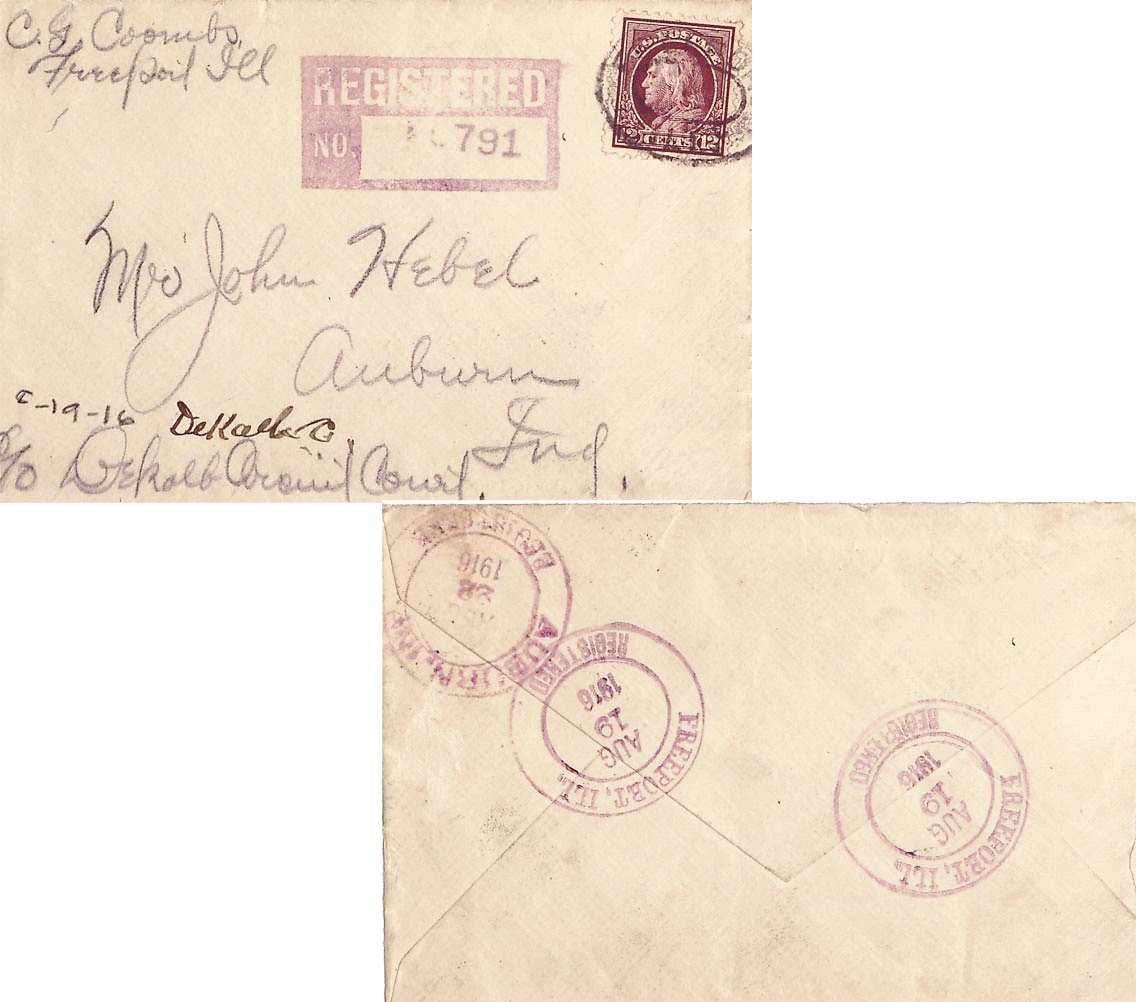 C. G. Coombs,
Freeport Ill
REGISTERED
NO. 791
U.S. POSTAGE
12 CENTS 12
Mr John Hebel
Auburn
Ind.
8-19-16 DeKalb C
c/o Dekalb Circuit Court.
REGISTERED
1916
22
AUBURN, IND.
REGISTERED
1916
19
AUG
FREEPORT, ILL.
REGISTERED
1916
19
AUG
FREEPORT, ILL.